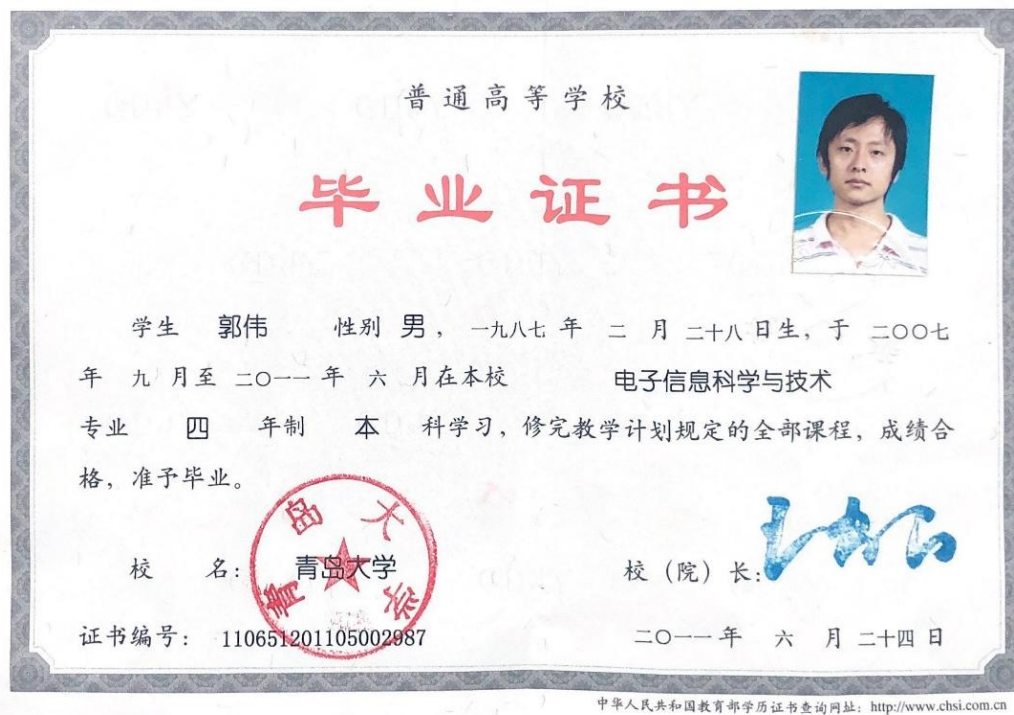 普通高等学校
毕业证书
学生 郭伟 性别 男， 一九八七 年 二 月 二十八 日生，于 二〇〇七
年 九 月至 二〇一一 年 六 月在本校 电子信息科学与技术
专业 四 年制 本 科学习，修完教学计划规定的全部课程，成绩合
格，准予毕业。
青岛大学
校 名： 青岛大学 校（院）长：
证书编号： 110651201105002987 二〇一一 年 六 月 二十四 日
中华人民共和国教育部学历证书查询网址：http://www.chsi.com.cn